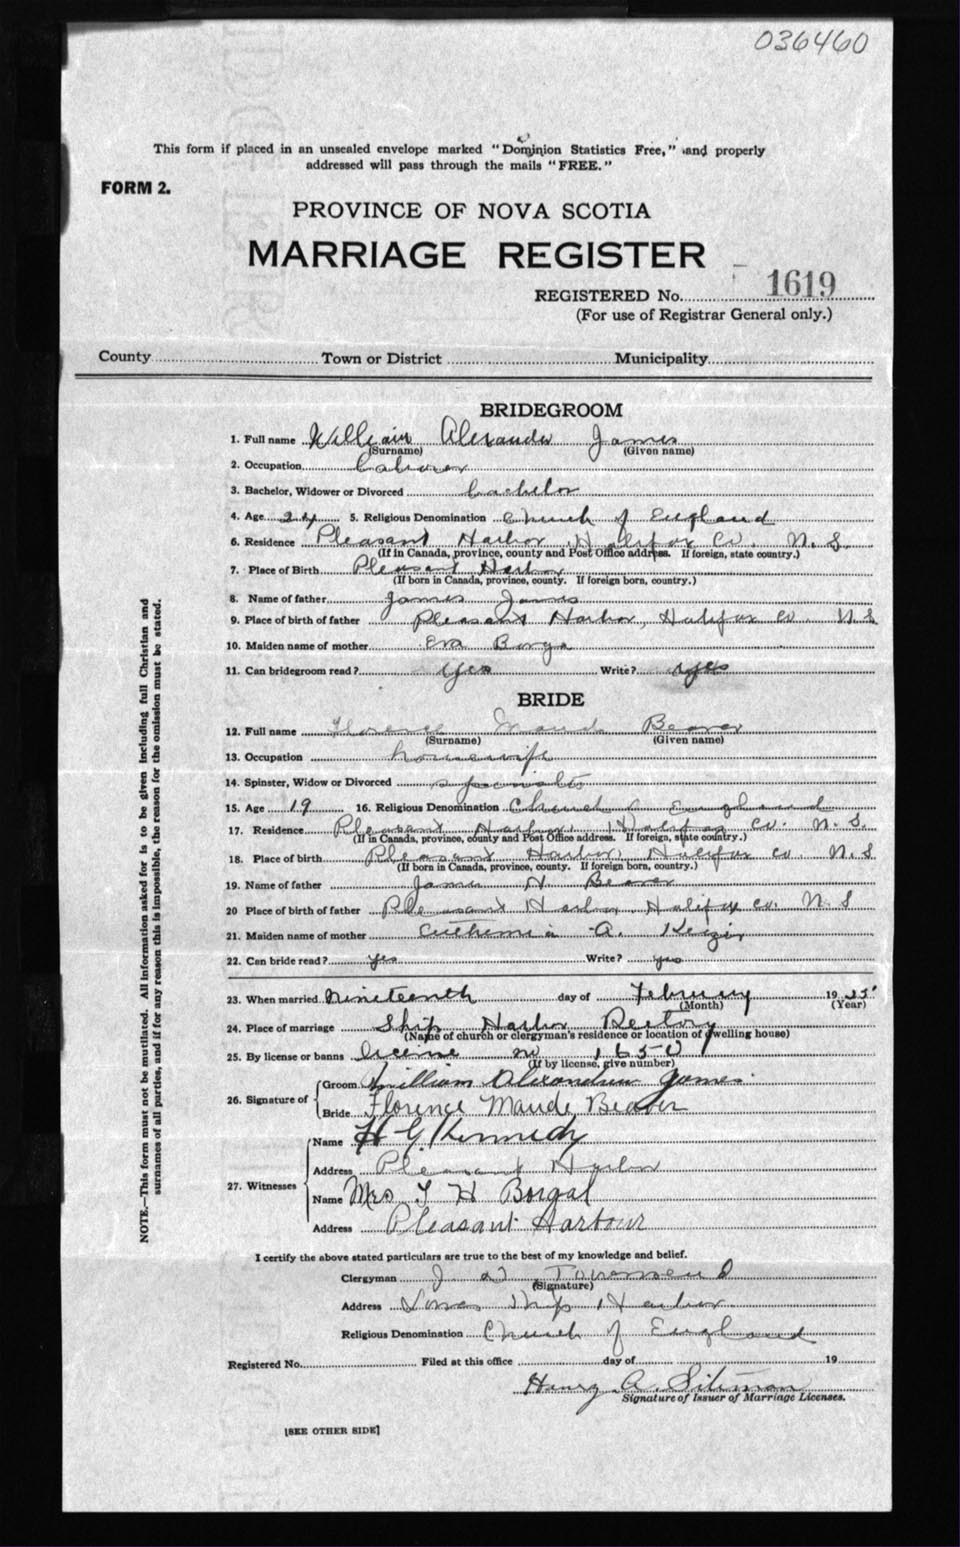 036460
This form if placed in an unsealed envelope marked "Dominion Statistics Free," and properly
addressed will pass through the mails "FREE."
FORM 2.
PROVINCE OF NOVA SCOTIA
MARRIAGE REGISTER
REGISTERED No. 1619
(For use of Registrar General only.)
County Town or District Municipality
BRIDEGROOM
1. Full name William Alexander James
(Surname) (Given name)
2. Occupation Laborer
3. Bachelor, Widower or Divorced bachelor
4. Age 24 5. Religious Denomination Church of England
6. Residence Pleasant Harbor Halifax Co. N.S.
(If in Canada, province, county and Post Office address. If foreign, state country.)
7. Place of Birth Pleasant Harbor
(If born in Canada, province, county. If foreign born, country.)
8. Name of father James James
9. Place of birth of father Pleasant Harbor, Halifax Co. N.S
10. Maiden name of mother Eva
11. Can bridegroom read? Yes Write? yes
BRIDE
12. Full name Florence Maude Beaver
(Surname) (Given name)
13. Occupation housewife
14. Spinster, Widow or Divorced
15. Age 19 16. Religious Denomination Church of England
17. Residence Pleasant Harbor, Halifax Co. N.S.
(If in Canada, province, county and Post Office address. If foreign, state country.)
18. Place of birth Pleasant Harbor, Halifax Co. N.S
(If born in Canada, province, county. If foreign born, country.)
19. Name of father James N. Beaver
20 Place of birth of father Pleasant Harbor Halifax Co. N.S
21. Maiden name of mother A.
22. Can bride read? yes Write? yes
23. When married Nineteenth day of February 1925
(Month) (Year)
24. Place of marriage Ship Harbor Rectory
(Name of church or clergyman's residence or location of dwelling house)
25. By license or banns license no 1650
(If by license, give number)
26. Signature of
Groom William Alexander James
Bride Florence Maude Beaver
27. Witnesses
Name H G Kennedy
Address Pleasant Harbor
Name Mrs H Borgal
Address Pleasant Harbour
I certify the above stated particulars are true to the best of my knowledge and belief.
Clergyman J Townsend
(Signature)
Address Ship Harbor
Religious Denomination Church of England
Registered No. Filed at this office day of 19
Henry A. Siteman
Signature of Issuer of Marriage Licenses.
[SEE OTHER SIDE]
NOTE.—This form must not be mutilated. All information asked for is to be given including full Christian and
surnames of all parties, and if for any reason this is impossible, the reason for the omission must be stated.